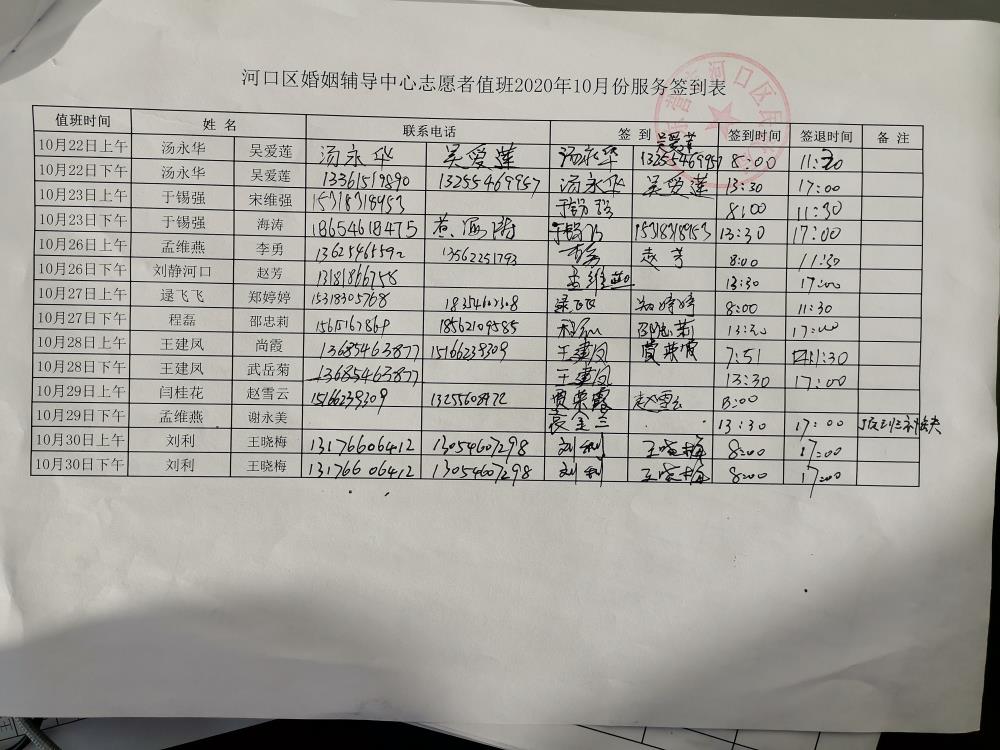 河口区婚姻辅导中心志愿者值班2020年10月份服务签到表
值班时间 姓 名 联系电话 签 到 签到时间 签退时间 备 注
吴爱莲
10月22日上午 汤永华 吴爱莲 汤永华 吴爱莲 汤永华 13255469957 8:00 11:30
10月22日下午 汤永华 吴爱莲 13361519890 13255469957 汤永华 吴爱莲 13:30 17:00
10月23日上午 于锡强 宋维强 15318318953 于锡强 8:00 11:30
10月23日下午 于锡强 海涛 18654618475 于锡强 15318318953 13:30 17:00
10月26日上午 孟维燕 李勇 13562251793 李勇 赵芳 8:00 11:30
10月26日下午 刘静河口 赵芳 13181866758 孟维燕 13:30 17:00
10月27日上午 逯飞飞 郑婷婷 15318305768 18354607308 逯飞飞 郑婷婷 8:00 11:30
10月27日下午 程磊 邵忠莉 18562109585 程磊 邵忠莉 13:30 17:00
10月28日上午 王建凤 尚霞 13685463877 15166239309 王建凤 贾荣霞 7:51 11:30
10月28日下午 王建凤 武岳菊 13685463877 王建凤 13:30 17:00
10月29日上午 闫桂花 赵雪云 15166239309 13255608472 贾荣霞 赵雪云 8:00
10月29日下午 孟维燕 谢永美 13:30 17:00
10月30日上午 刘利 王晓梅 13176606412 13054607298 刘利 王晓梅 8:00 17:00
10月30日下午 刘利 王晓梅 13176606412 13054607298 刘利 王晓梅 8:00 17:00